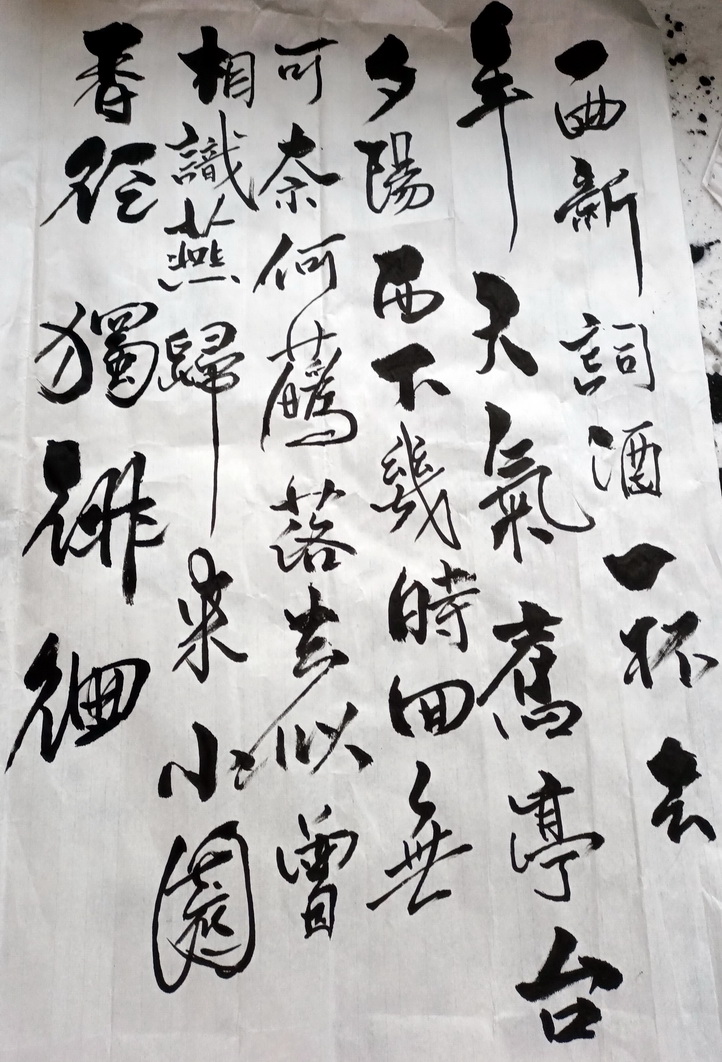 一曲新詞酒一杯去
年天氣舊亭台
夕陽西下幾時回無
可奈何蘤落去似曾
相識燕歸來小園
香徑獨徘徊